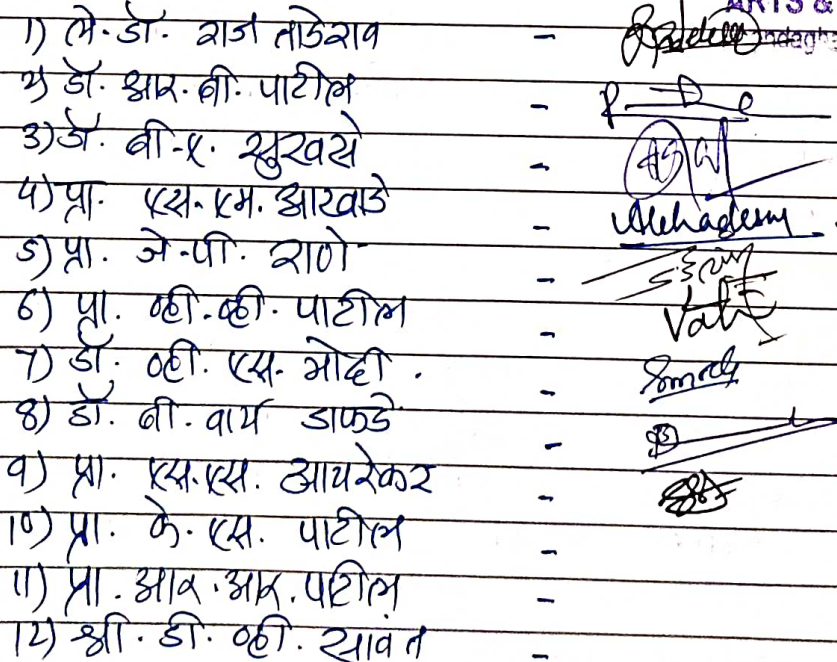 ARTS &
१) ले. डॉ. राज ताडेराव -
२) डॉ. आर. बी. पाटील -
३) डॉ. बी. ए. सुखसे -
४) प्रा. एस. एम. आखाडे -
५) प्रा. जे. पी. राणे -
६) प्रा. व्ही. व्ही. पाटील -
७) डॉ. व्ही. एस. मोदी. -
८) डॉ. बी. वाय डाफडे -
९) प्रा. एस. एस. आयरेकर -
१०) प्रा. के. एस. पाटील -
११) प्रा. आर. आर. पाटील -
१२) श्री. डी. व्ही. सावंत -